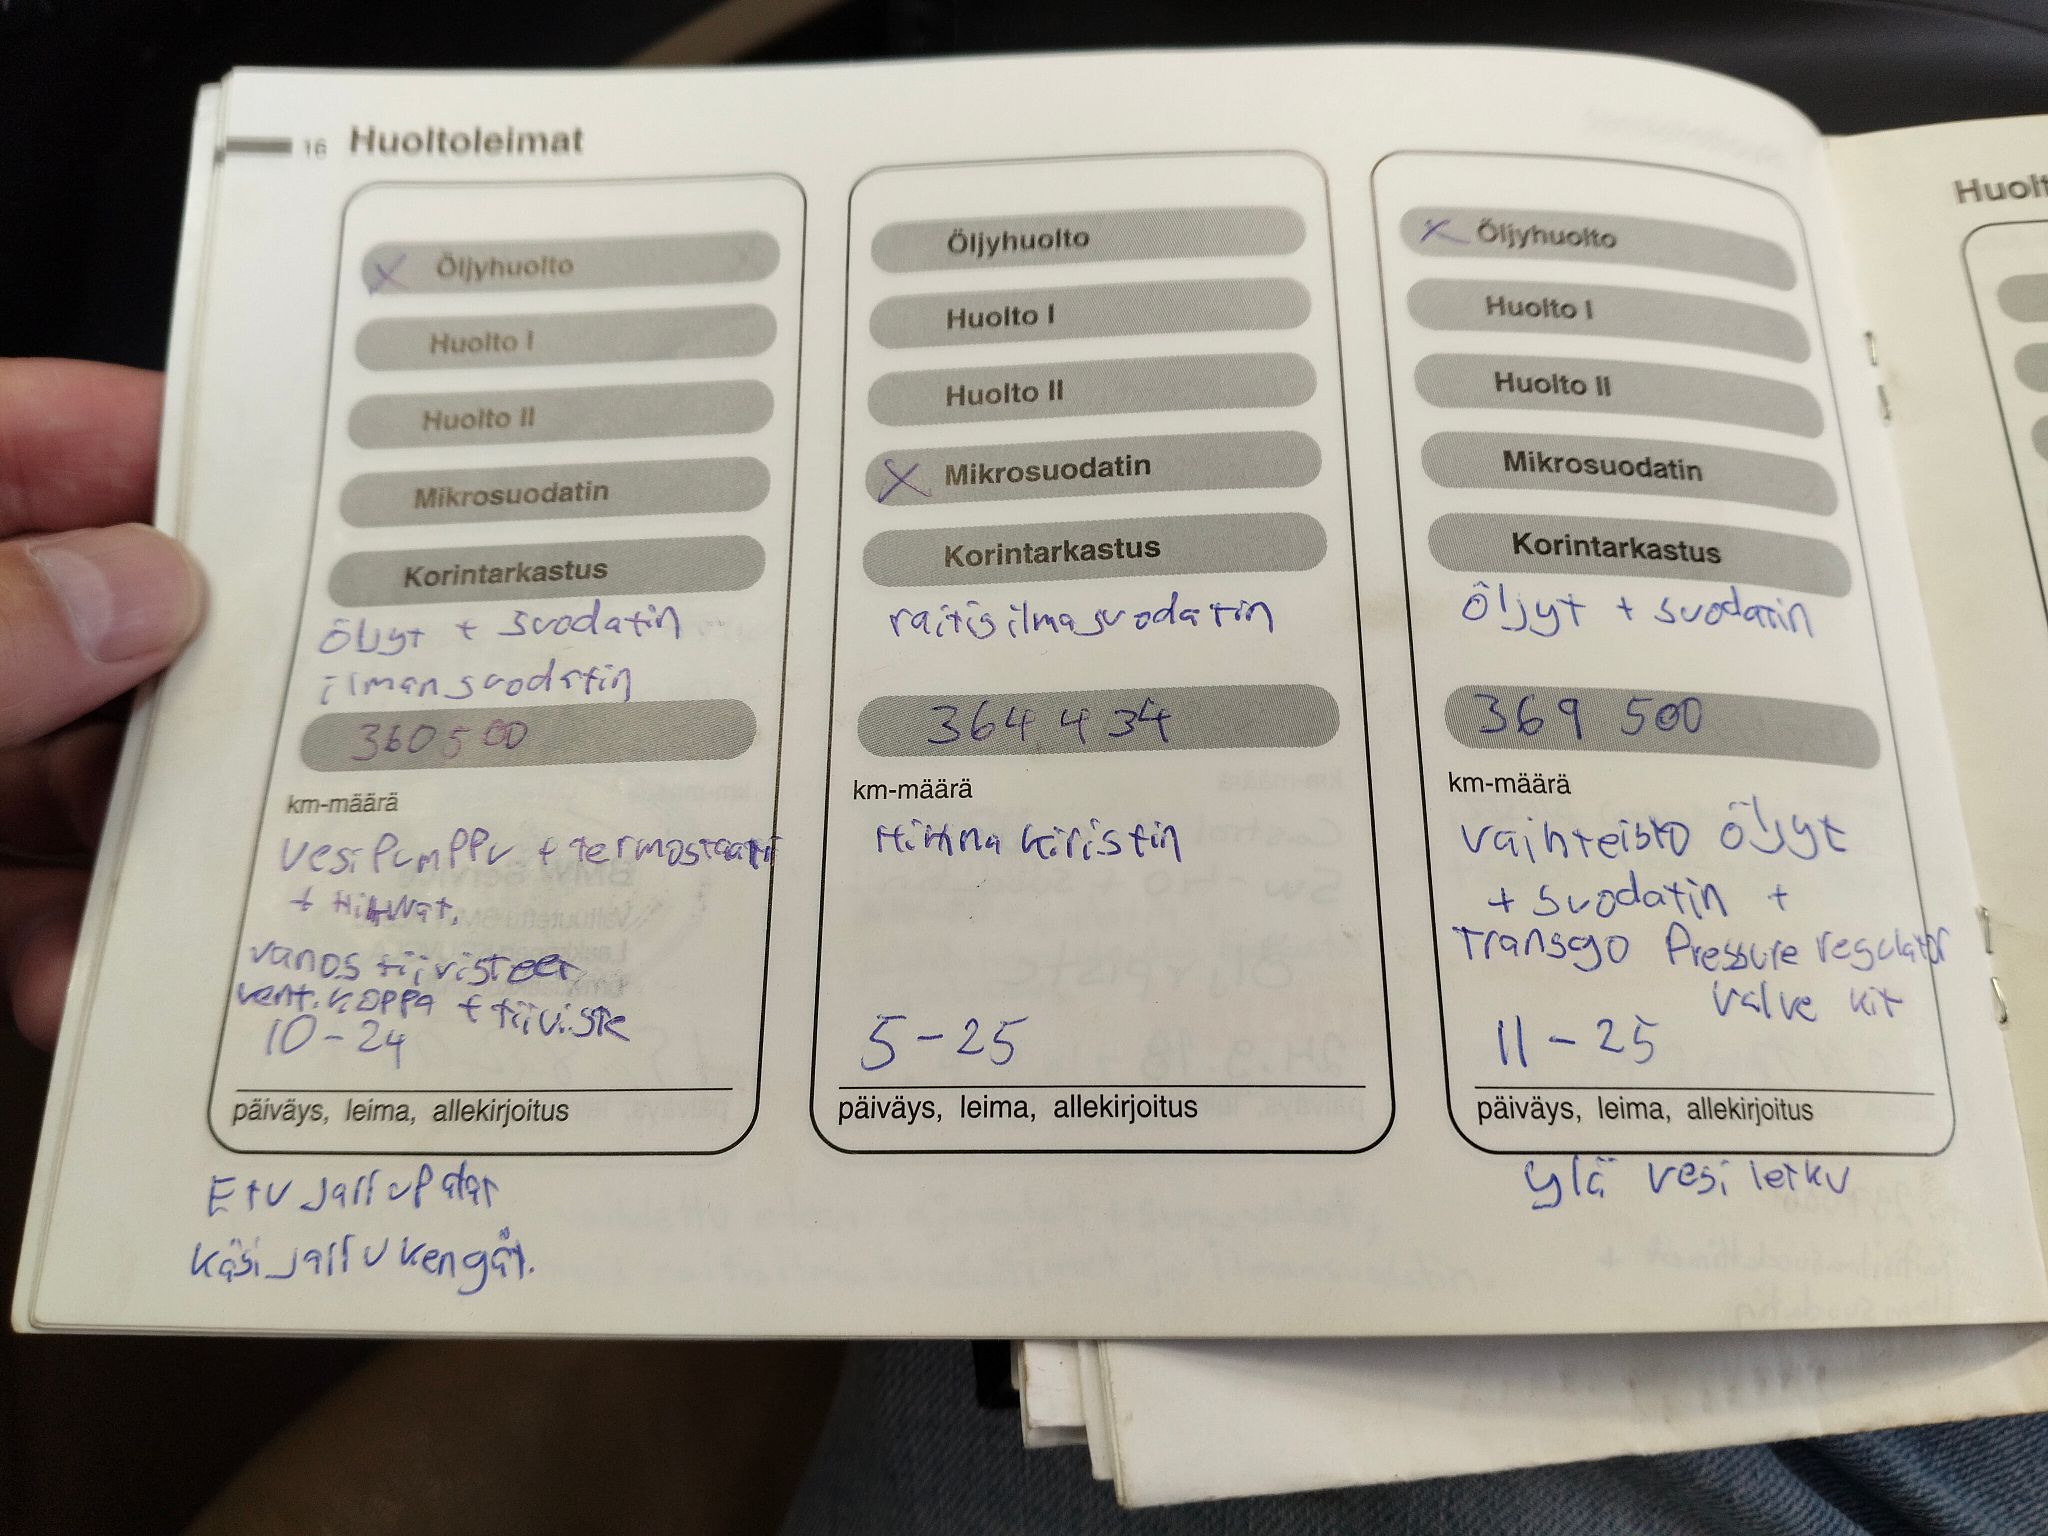 16 Huoltoleimat
Öljyhuolto
Huolto I
Huolto II
Mikrosuodatin
Korintarkastus
öljyt + suodatin
ilmansuodatin
360 500
km-määrä
vesipumppu + termostaatti
+ hihnat.
vanos tiivisteet
vent.koppa + tiiviste
10-24
päiväys, leima, allekirjoitus
Etu jallupalat
käsijallu kengät.
Öljyhuolto
Huolto I
Huolto II
Mikrosuodatin
Korintarkastus
raitisilmasuodatin
364 434
km-määrä
Hihna kiristin
5-25
päiväys, leima, allekirjoitus
Öljyhuolto
Huolto I
Huolto II
Mikrosuodatin
Korintarkastus
Öljyt + suodatin
369 500
km-määrä
vaihteisto öljyt
+ suodatin +
Transgo Pressure regulator
valve kit
11-25
päiväys, leima, allekirjoitus
ylä vesi letku
Huolt